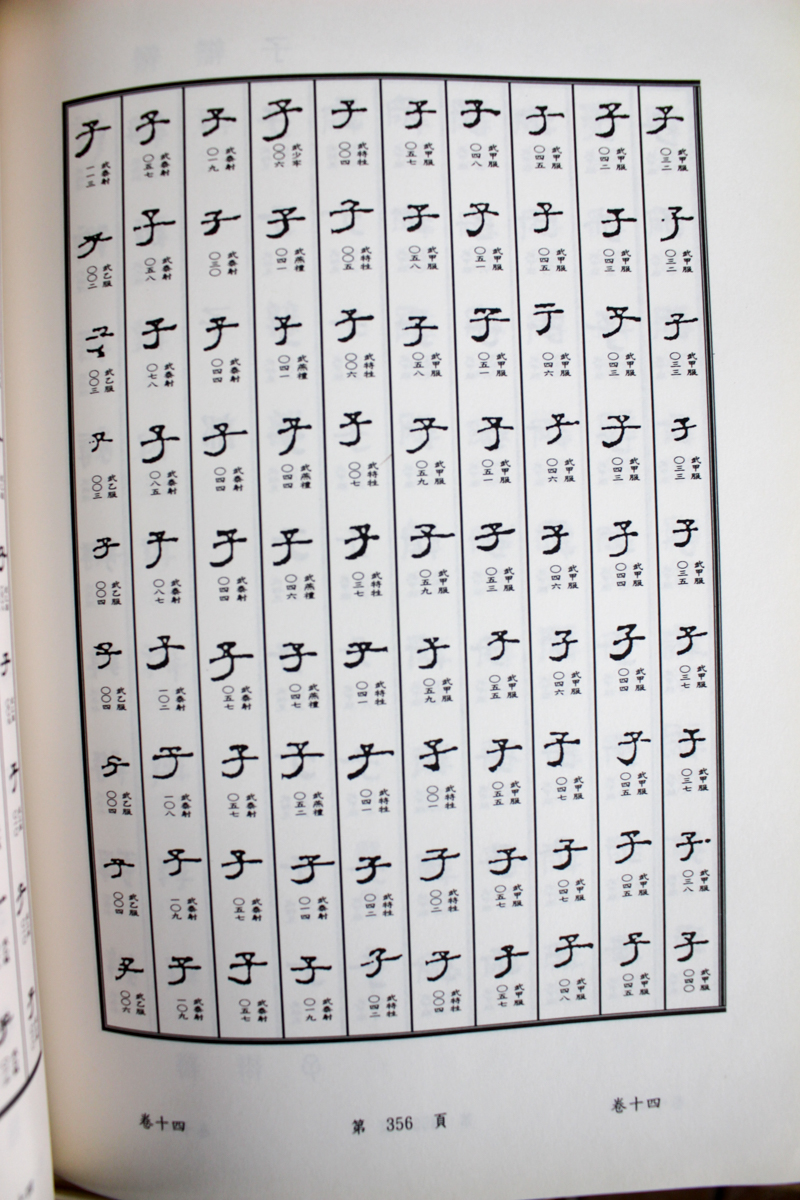 子 武甲服 〇三二 子 武甲服 〇三二 子 武甲服 〇三三 子 武甲服 〇三三 子 武甲服 〇三五 子 武甲服 〇三七 子 武甲服 〇三七 子 武甲服 〇三八 子 武甲服 〇四〇
子 武甲服 〇四二 子 武甲服 〇四三 子 武甲服 〇四三 子 武甲服 〇四三 子 武甲服 〇四四 子 武甲服 〇四四 子 武甲服 〇四五 子 武甲服 〇四五 子 武甲服 〇四五
子 武甲服 〇四五 子 武甲服 〇四五 子 武甲服 〇四六 子 武甲服 〇四六 子 武甲服 〇四六 子 武甲服 〇四六 子 武甲服 〇四七 子 武甲服 〇四七 子 武甲服 〇四八
子 武甲服 〇四八 子 武甲服 〇五一 子 武甲服 〇五一 子 武甲服 〇五一 子 武甲服 〇五三 子 武甲服 〇五五 子 武甲服 〇五五 子 武甲服 〇五七 子 武甲服 〇五七
子 武甲服 〇五七 子 武甲服 〇五八 子 武甲服 〇五八 子 武甲服 〇五九 子 武甲服 〇五九 子 武甲服 〇五九 子 武特牲 〇〇一 子 武特牲 〇〇二 子 武特牲 〇〇四
子 武特牲 〇〇四 子 武特牲 〇〇五 子 武特牲 〇〇六 子 武特牲 〇〇七 子 武特牲 〇三七 子 武特牲 〇四一 子 武特牲 〇四一 子 武特牲 〇四二 子 武特牲 〇四二
子 武少牢 〇〇六 子 武燕禮 〇四一 子 武燕禮 〇四一 子 武燕禮 〇四四 子 武燕禮 〇四六 子 武燕禮 〇四七 子 武燕禮 〇五二 子 武泰射 〇一四 子 武泰射 〇一九
子 武泰射 〇一九 子 武泰射 〇三〇 子 武泰射 〇四四 子 武泰射 〇四四 子 武泰射 〇四四 子 武泰射 〇五七 子 武泰射 〇五七 子 武泰射 〇五七 子 武泰射 〇五七
子 武泰射 〇五七 子 武泰射 〇五八 子 武泰射 〇七八 子 武泰射 〇八五 子 武泰射 〇八七 子 武泰射 一〇二 子 武泰射 一〇八 子 武泰射 一〇九 子 武泰射 一〇九
子 武泰射 一一三 子 武乙服 〇〇二 子 武乙服 〇〇三 子 武乙服 〇〇三 子 武乙服 〇〇四 子 武乙服 〇〇四 子 武乙服 〇〇四 子 武乙服 〇〇四 子 武乙服 〇〇六
卷十四 第 356 頁 卷十四